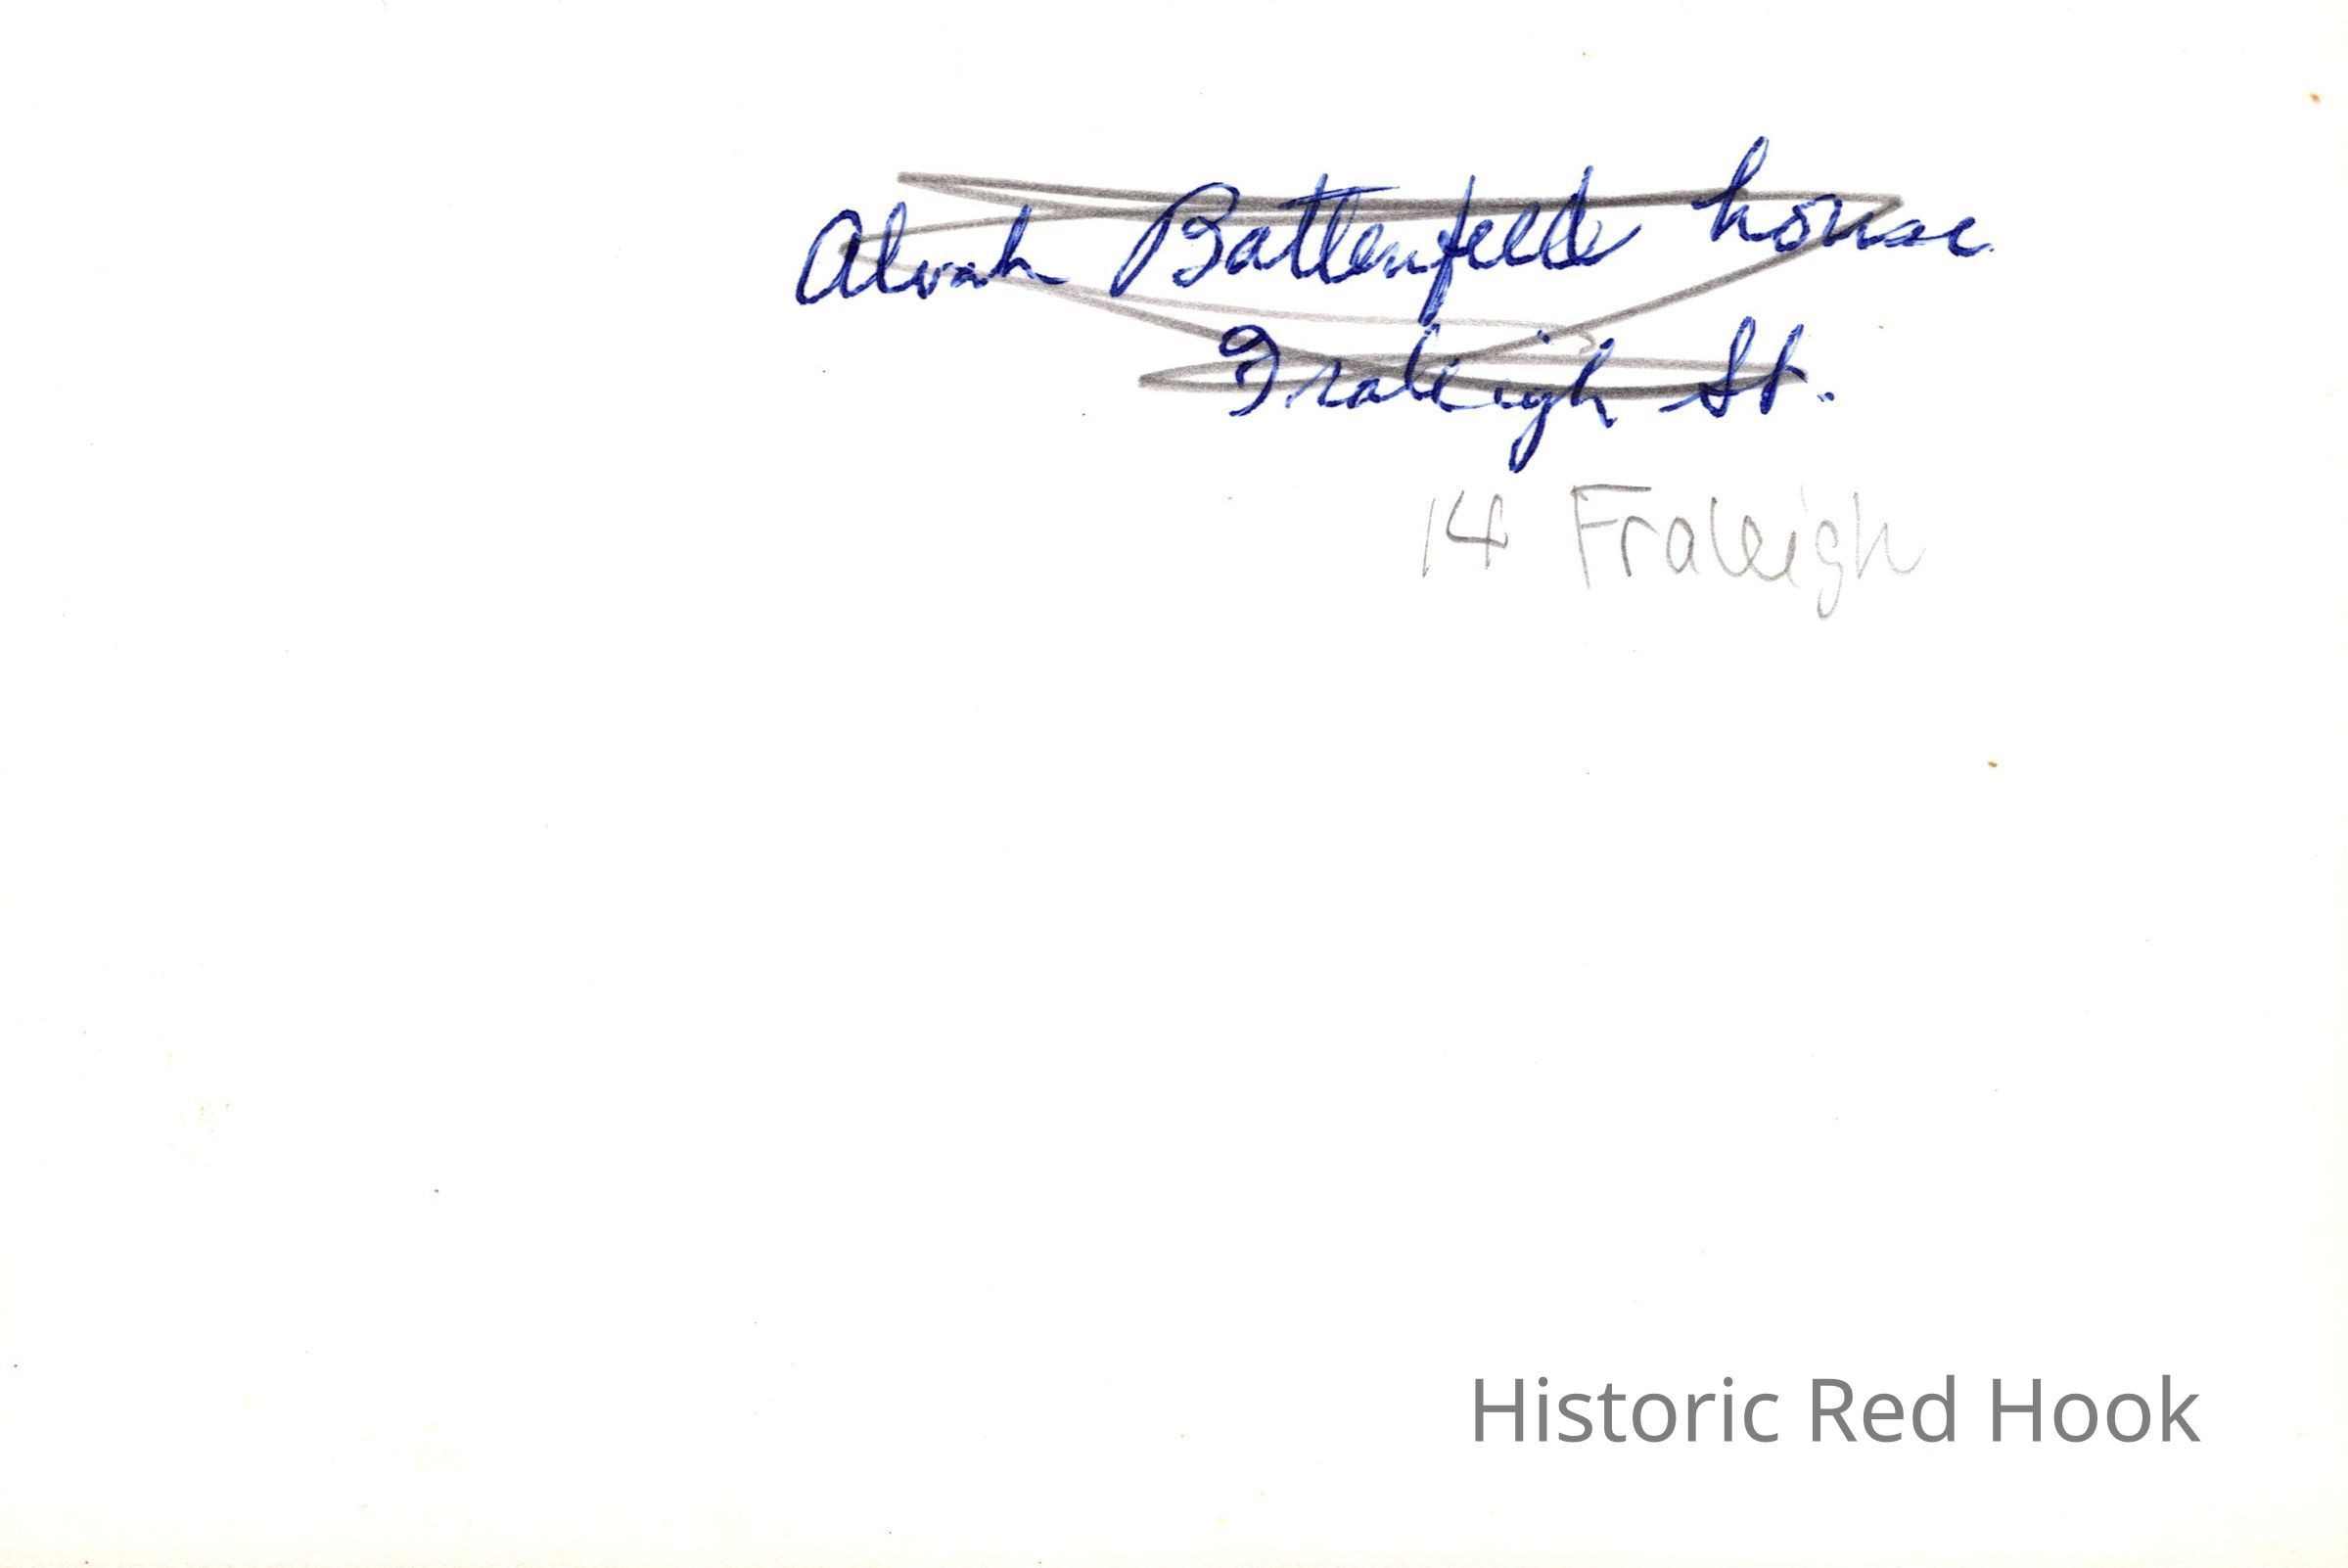 Alvah Battenfeld house
Fraleigh St.
14 Fraleigh
Historic Red Hook